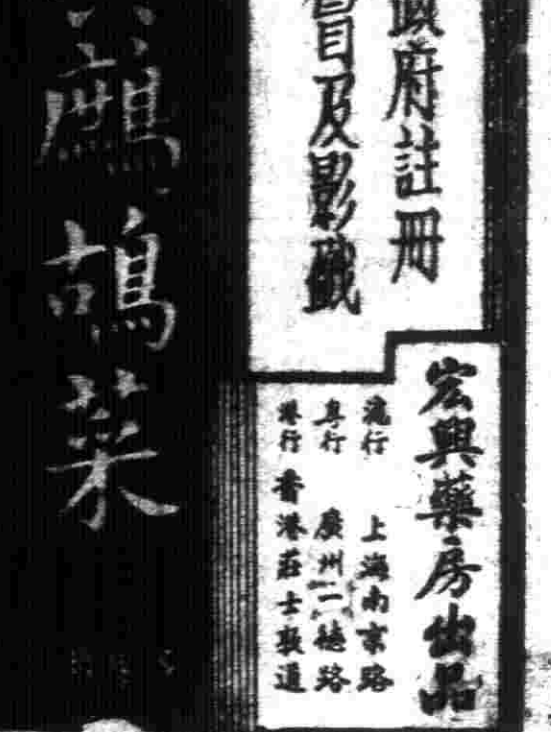 政府註冊
及影戤
宏興藥房出品
滬行 上海南京路
粵行 廣州一德路
港行 香港莊士敦道
鷓鴣菜